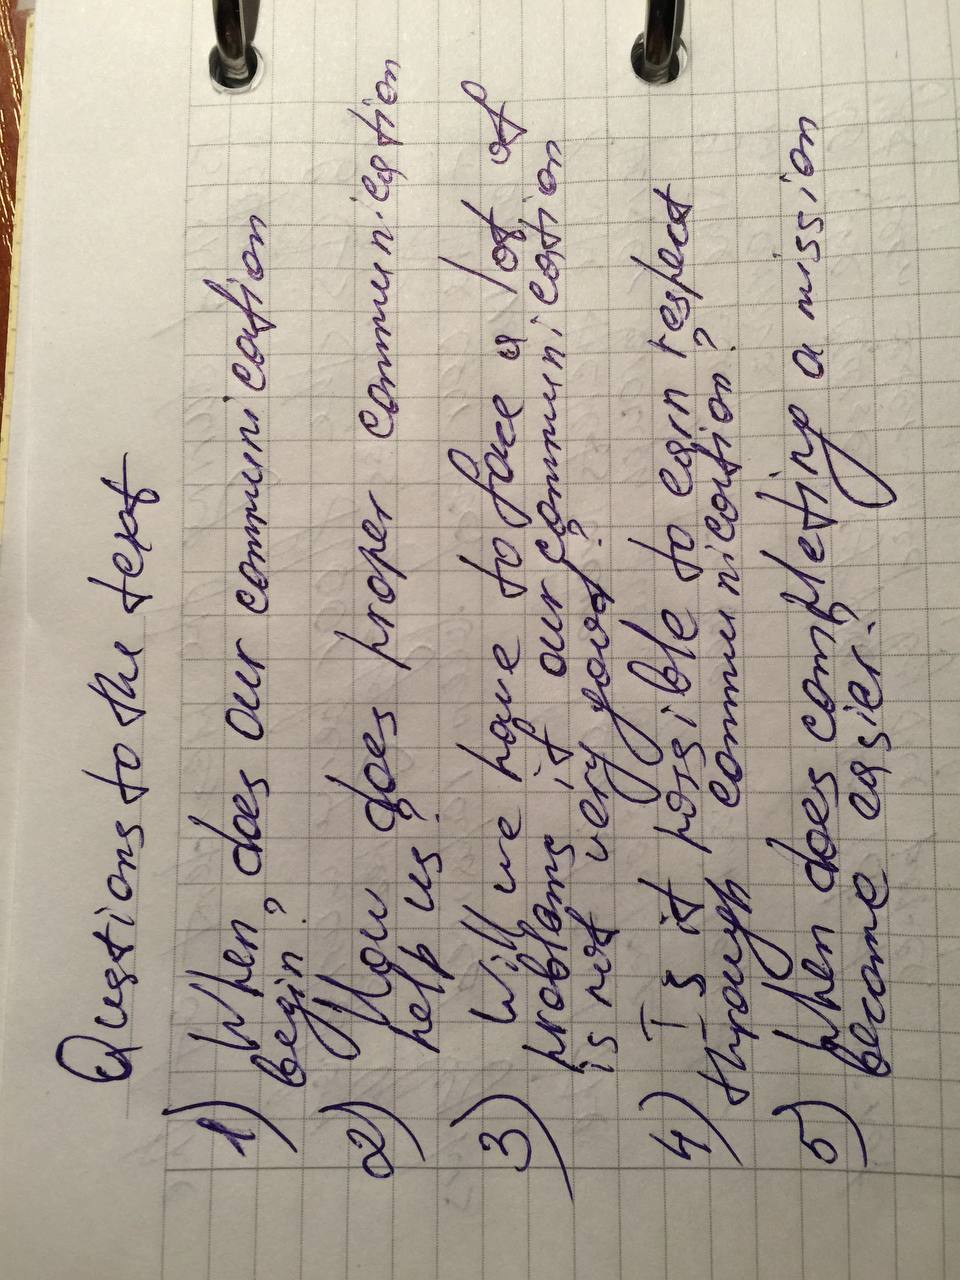 Questions to the text
1) When does our communication
begin?
2) How does proper communication
help us?
3) Will we have to face a lot of
problems if our communication
is not very good?
4) Is it possible to earn respect
through communication?
5) When does completing a mission
become easier?